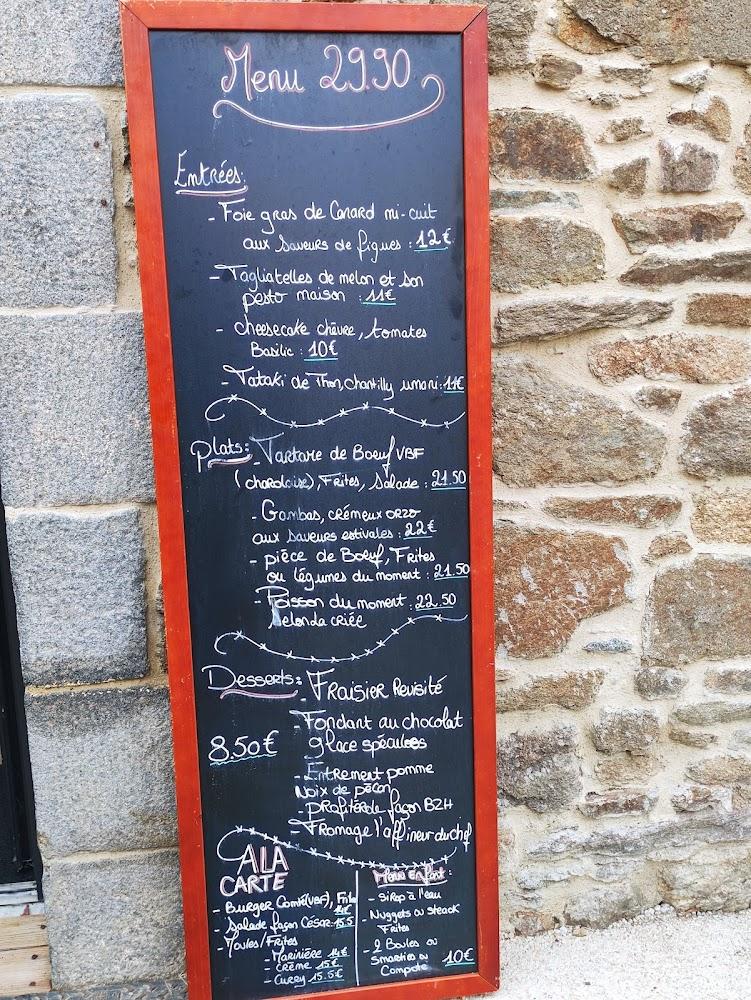 Menu 29.90
Entrées:
- Foie gras de Canard mi-cuit
aux saveurs de figues : 12€
- Tagliatelles de melon et son
pesto maison : 11€
- cheesecake chèvre, tomates
Basilic : 10€
- Tataki de Thon, chantilly umani : 11€
Plats: - Tartare de Boeuf VBF
(charolaise), Frites, salade : 21.50
- Gambas, crémeux orzo
aux saveurs estivales : 22€
- pièce de Boeuf, Frites
ou légumes du moment : 21.50
- Poisson du moment : 22.50
selon la criée
Desserts: - Fraisier Revisité
- Fondant au chocolat
8.50€ glace spéculoos
- Entrement pomme
Noix de pécan
- profiterole façon BZH
- Fromage l'affineur du chef
A LA
CARTE
- Burger Comté(VBF), Frite
- Salade façon César: 15.5
- Moules/Frites
- Marinière 14€
- crème 15€
- Curry 15.5€
Menu enfant :
- Sirop à l'eau
- Nuggets ou steack
Frites
- 2 Boules ou
Smarties ou
Compote 10€